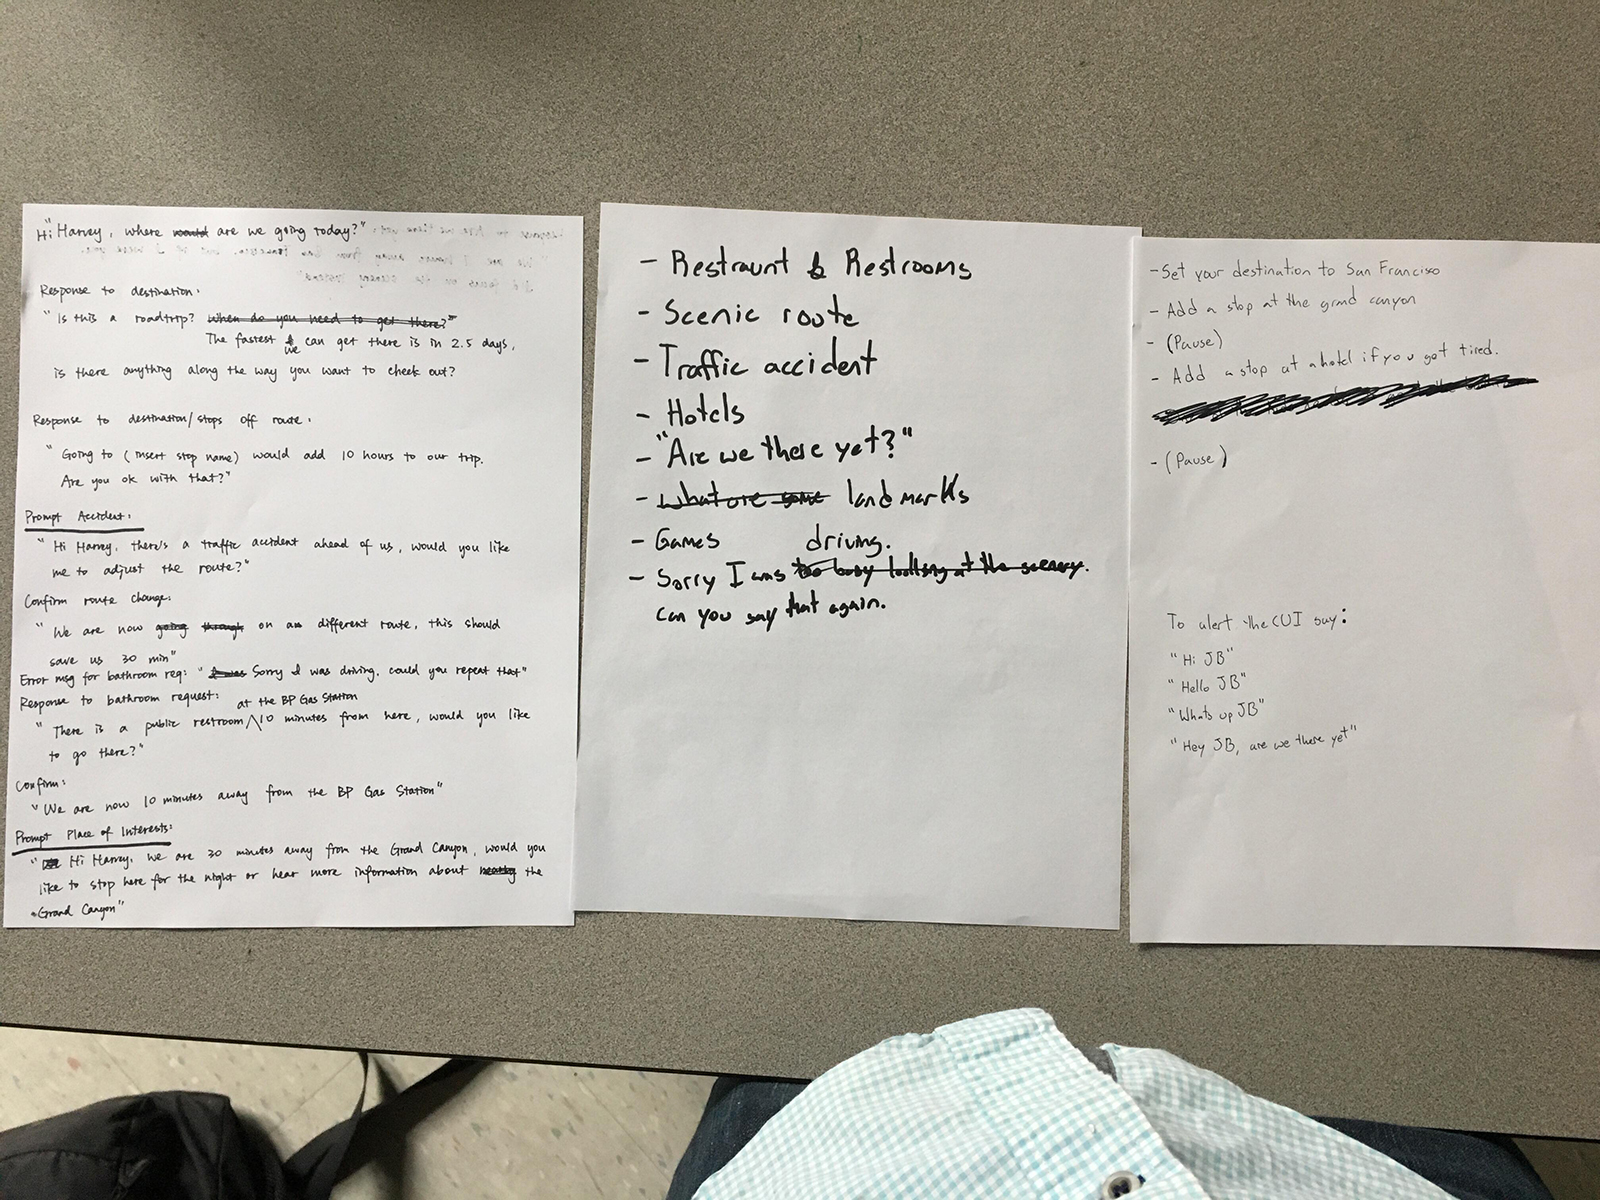 "Hi Harvey, where would are we going today?"
Response to destination:
"Is this a roadtrip? When do you need to get there?"
The fastest we can get there is in 2.5 days,
is there anything along the way you want to check out?
Response to destination/stops off route:
"Going to (insert stop name) would add 10 hours to our trip.
Are you ok with that?"
Prompt Accident:
"Hi Harvey, there's a traffic accident ahead of us, would you like
me to adjust the route?"
Confirm route change:
"We are now going through on a different route, this should
save us 30 min"
Error msg for bathroom req: "I was Sorry I was driving, could you repeat that"
Response to bathroom request:
at the BP Gas Station
"There is a public restroom ^ 10 minutes from here, would you like
to go there?"
Confirm:
"We are now 10 minutes away from the BP Gas Station"
Prompt Place of Interests:
"Hi Harvey, we are 30 minutes away from the Grand Canyon, would you
like to stop here for the night or hear more information about the
Grand Canyon"
- Restraunt & Restrooms
- Scenic route
- Traffic accident
- Hotels
- "Are we there yet?"
- What are some landmarks
- Games
driving.
- Sorry I was too busy looking at the scenery.
can you say that again.
- Set your destination to San Francisco
- Add a stop at the grand canyon
- (Pause)
- Add a stop at a hotel if you get tired.
- (Pause)
To alert the CUI say:
"Hi JB"
"Hello JB"
"Whats up JB"
"Hey JB, are we there yet"